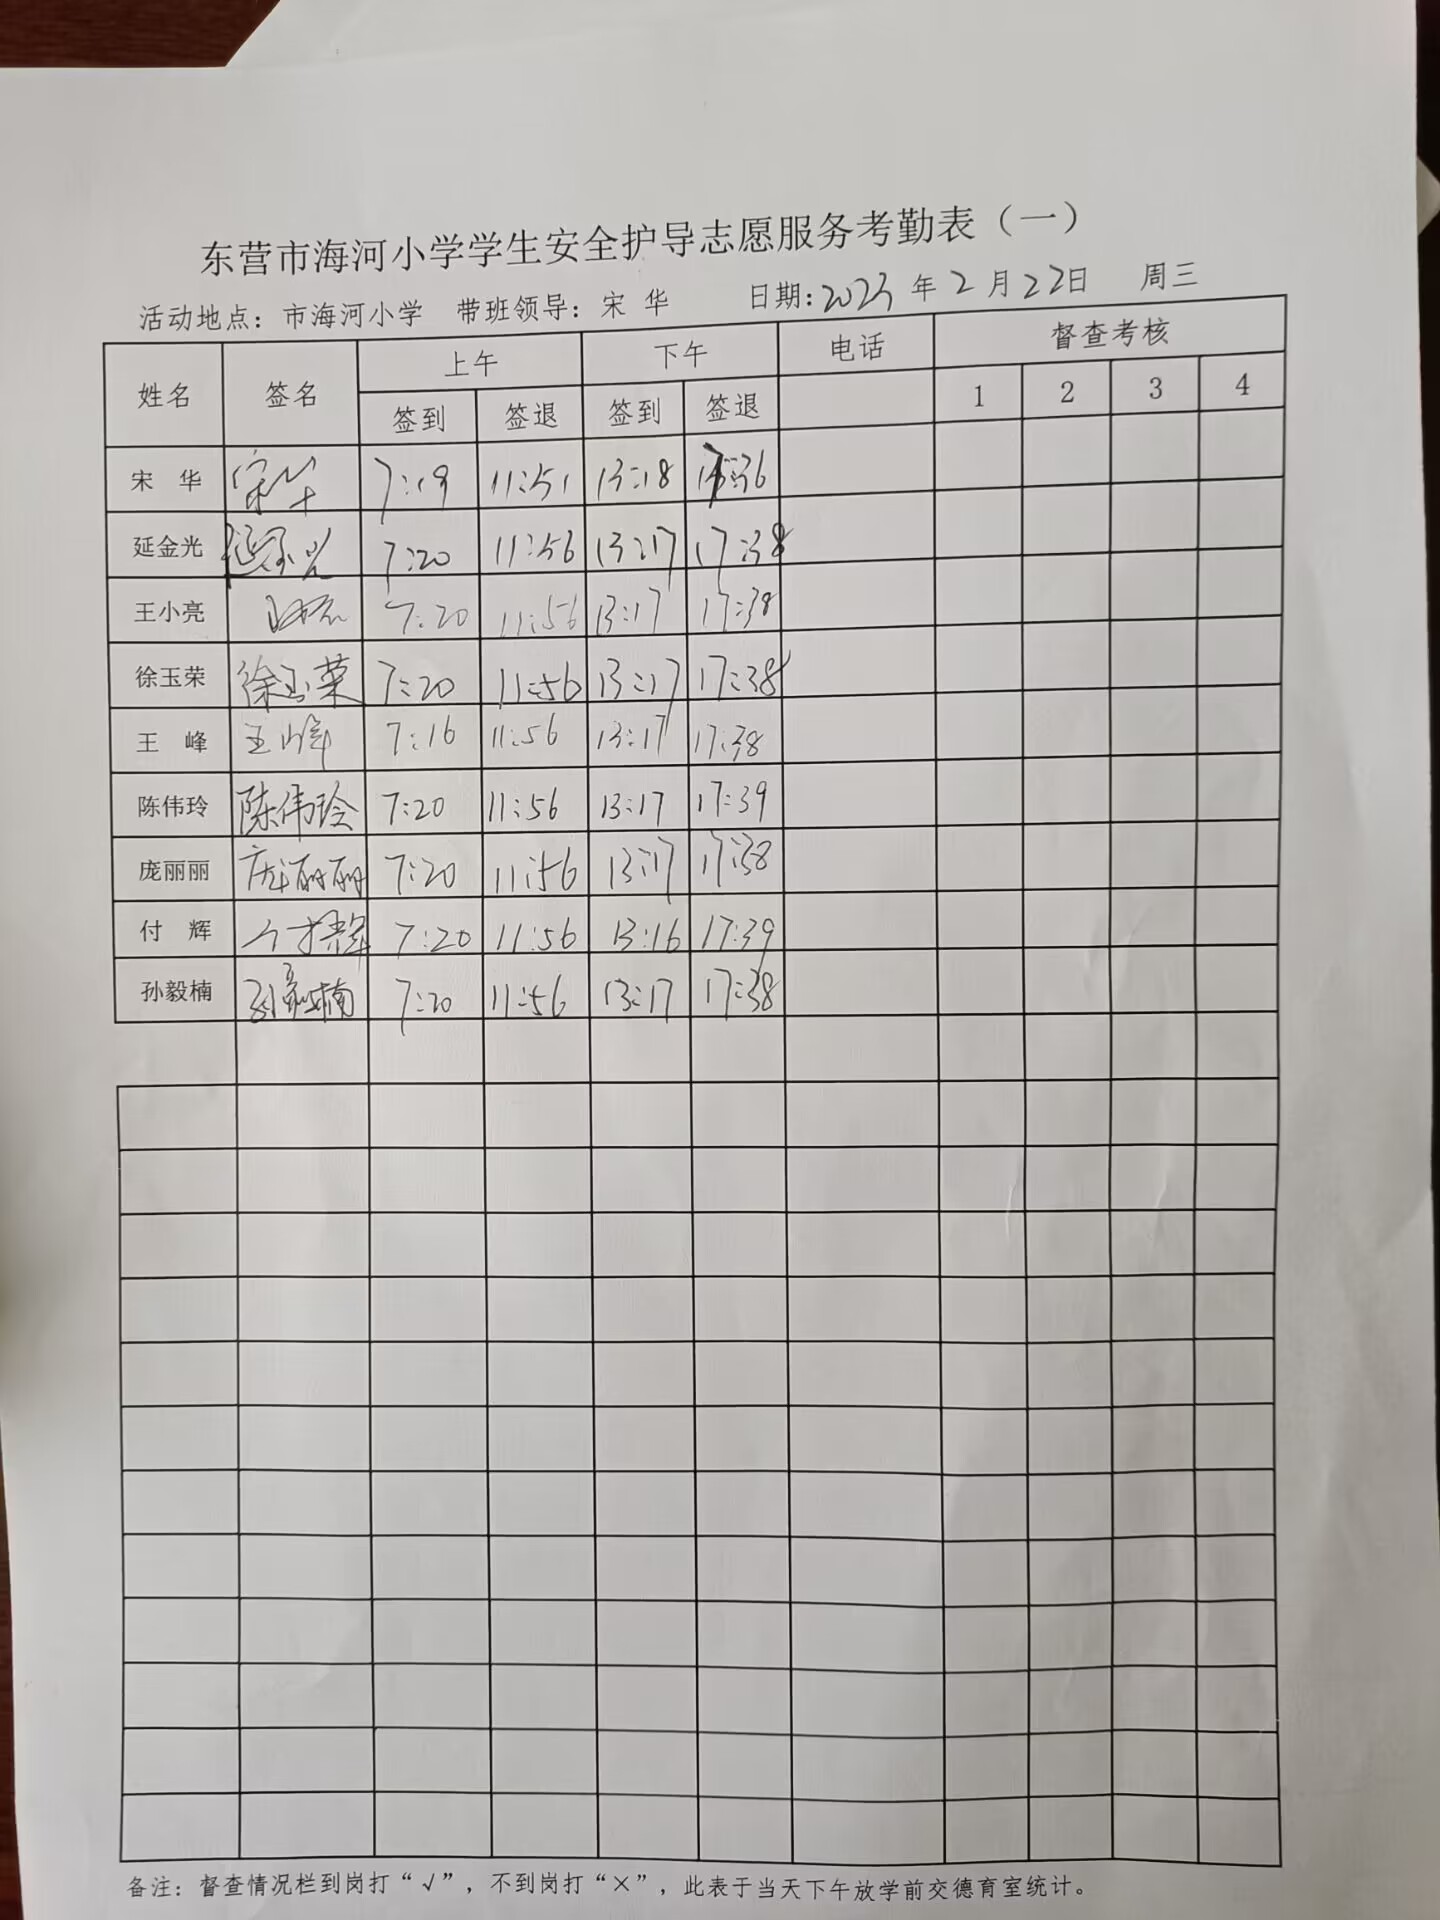 东营市海河小学学生安全护导志愿服务考勤表（一）
活动地点：市海河小学 带班领导：宋 华 日期：2023年2月22日 周三
姓名 签名 上午 下午 电话 督查考核
签到 签退 签到 签退 1 2 3 4
宋 华 宋华 7:19 11:51 13:18 17:36
延金光 延金光 7:20 11:56 13:17 17:38
王小亮 7:20 11:56 13:17 17:38
徐玉荣 徐玉荣 7:20 11:56 13:17 17:38
王 峰 王峰 7:16 11:56 13:17 17:38
陈伟玲 陈伟玲 7:20 11:56 13:17 17:39
庞丽丽 庞丽丽 7:20 11:56 13:17 17:38
付 辉 付辉 7:20 11:56 13:16 17:39
孙毅楠 孙毅楠 7:20 11:56 13:17 17:38
备注：督查情况栏到岗打“√”，不到岗打“×”，此表于当天下午放学前交德育室统计。